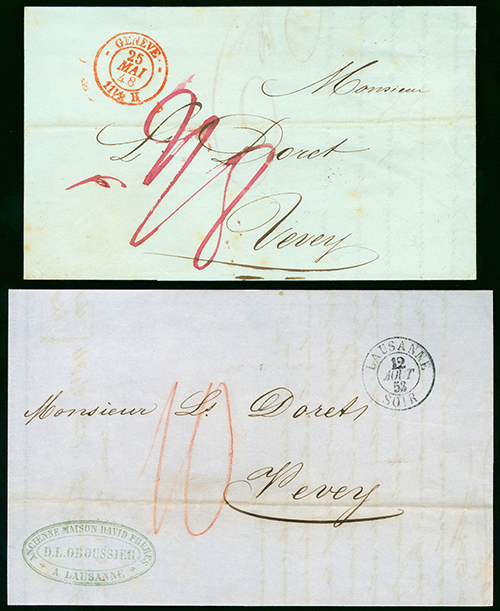 GENÈVE
25
MAI
48
11½ H
Monsieur
Ls Doret
Vevey
LAUSANNE
12
AOUT
53
SOIR
Monsieur Ls Doret
10
Vevey
ANCIENNE MAISON DAVID FRÈRES
D.L.OBOUSSIER
A LAUSANNE